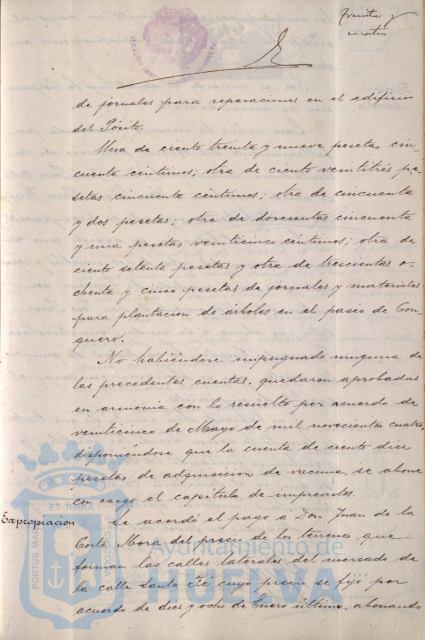 Treinta y
cuatro
de jornales para reparaciones en el edificio
del Pósito.
Una de ciento treinta y nueve pesetas cin-
cuenta céntimos; otra de ciento veintitrés pe-
setas cincuenta céntimos; otra de cincuenta
y dos pesetas; otra de doscientas cincuenta
y una pesetas veinticinco céntimos; otra de
ciento setenta pesetas y otra de trescientas o-
chenta y cinco pesetas de jornales y materiales
para plantacion de árboles en el paseo de Con-
quero.
No habiéndose impugnado ninguna de
las precedentes cuentas, quedaron aprobadas
en armonia con lo resuelto por acuerdo de
veinticinco de Mayo de mil novecientos cuatro,
disponiéndose que la cuenta de ciento diez
pesetas de adquisicion de vacuna, se abone
con cargo al capítulo de imprevistos.
Expropiación
Se acordó el pago á Don Juan de la
Corte Mora del precio de los terrenos que
forman las calles laterales del mercado de
la calle Santa Fé cuyo precio se fijó por
acuerdo de diez y ocho de Enero último, abonando
PORTUS MARIS ET TERRAE
Ayuntamiento de
HUELVA